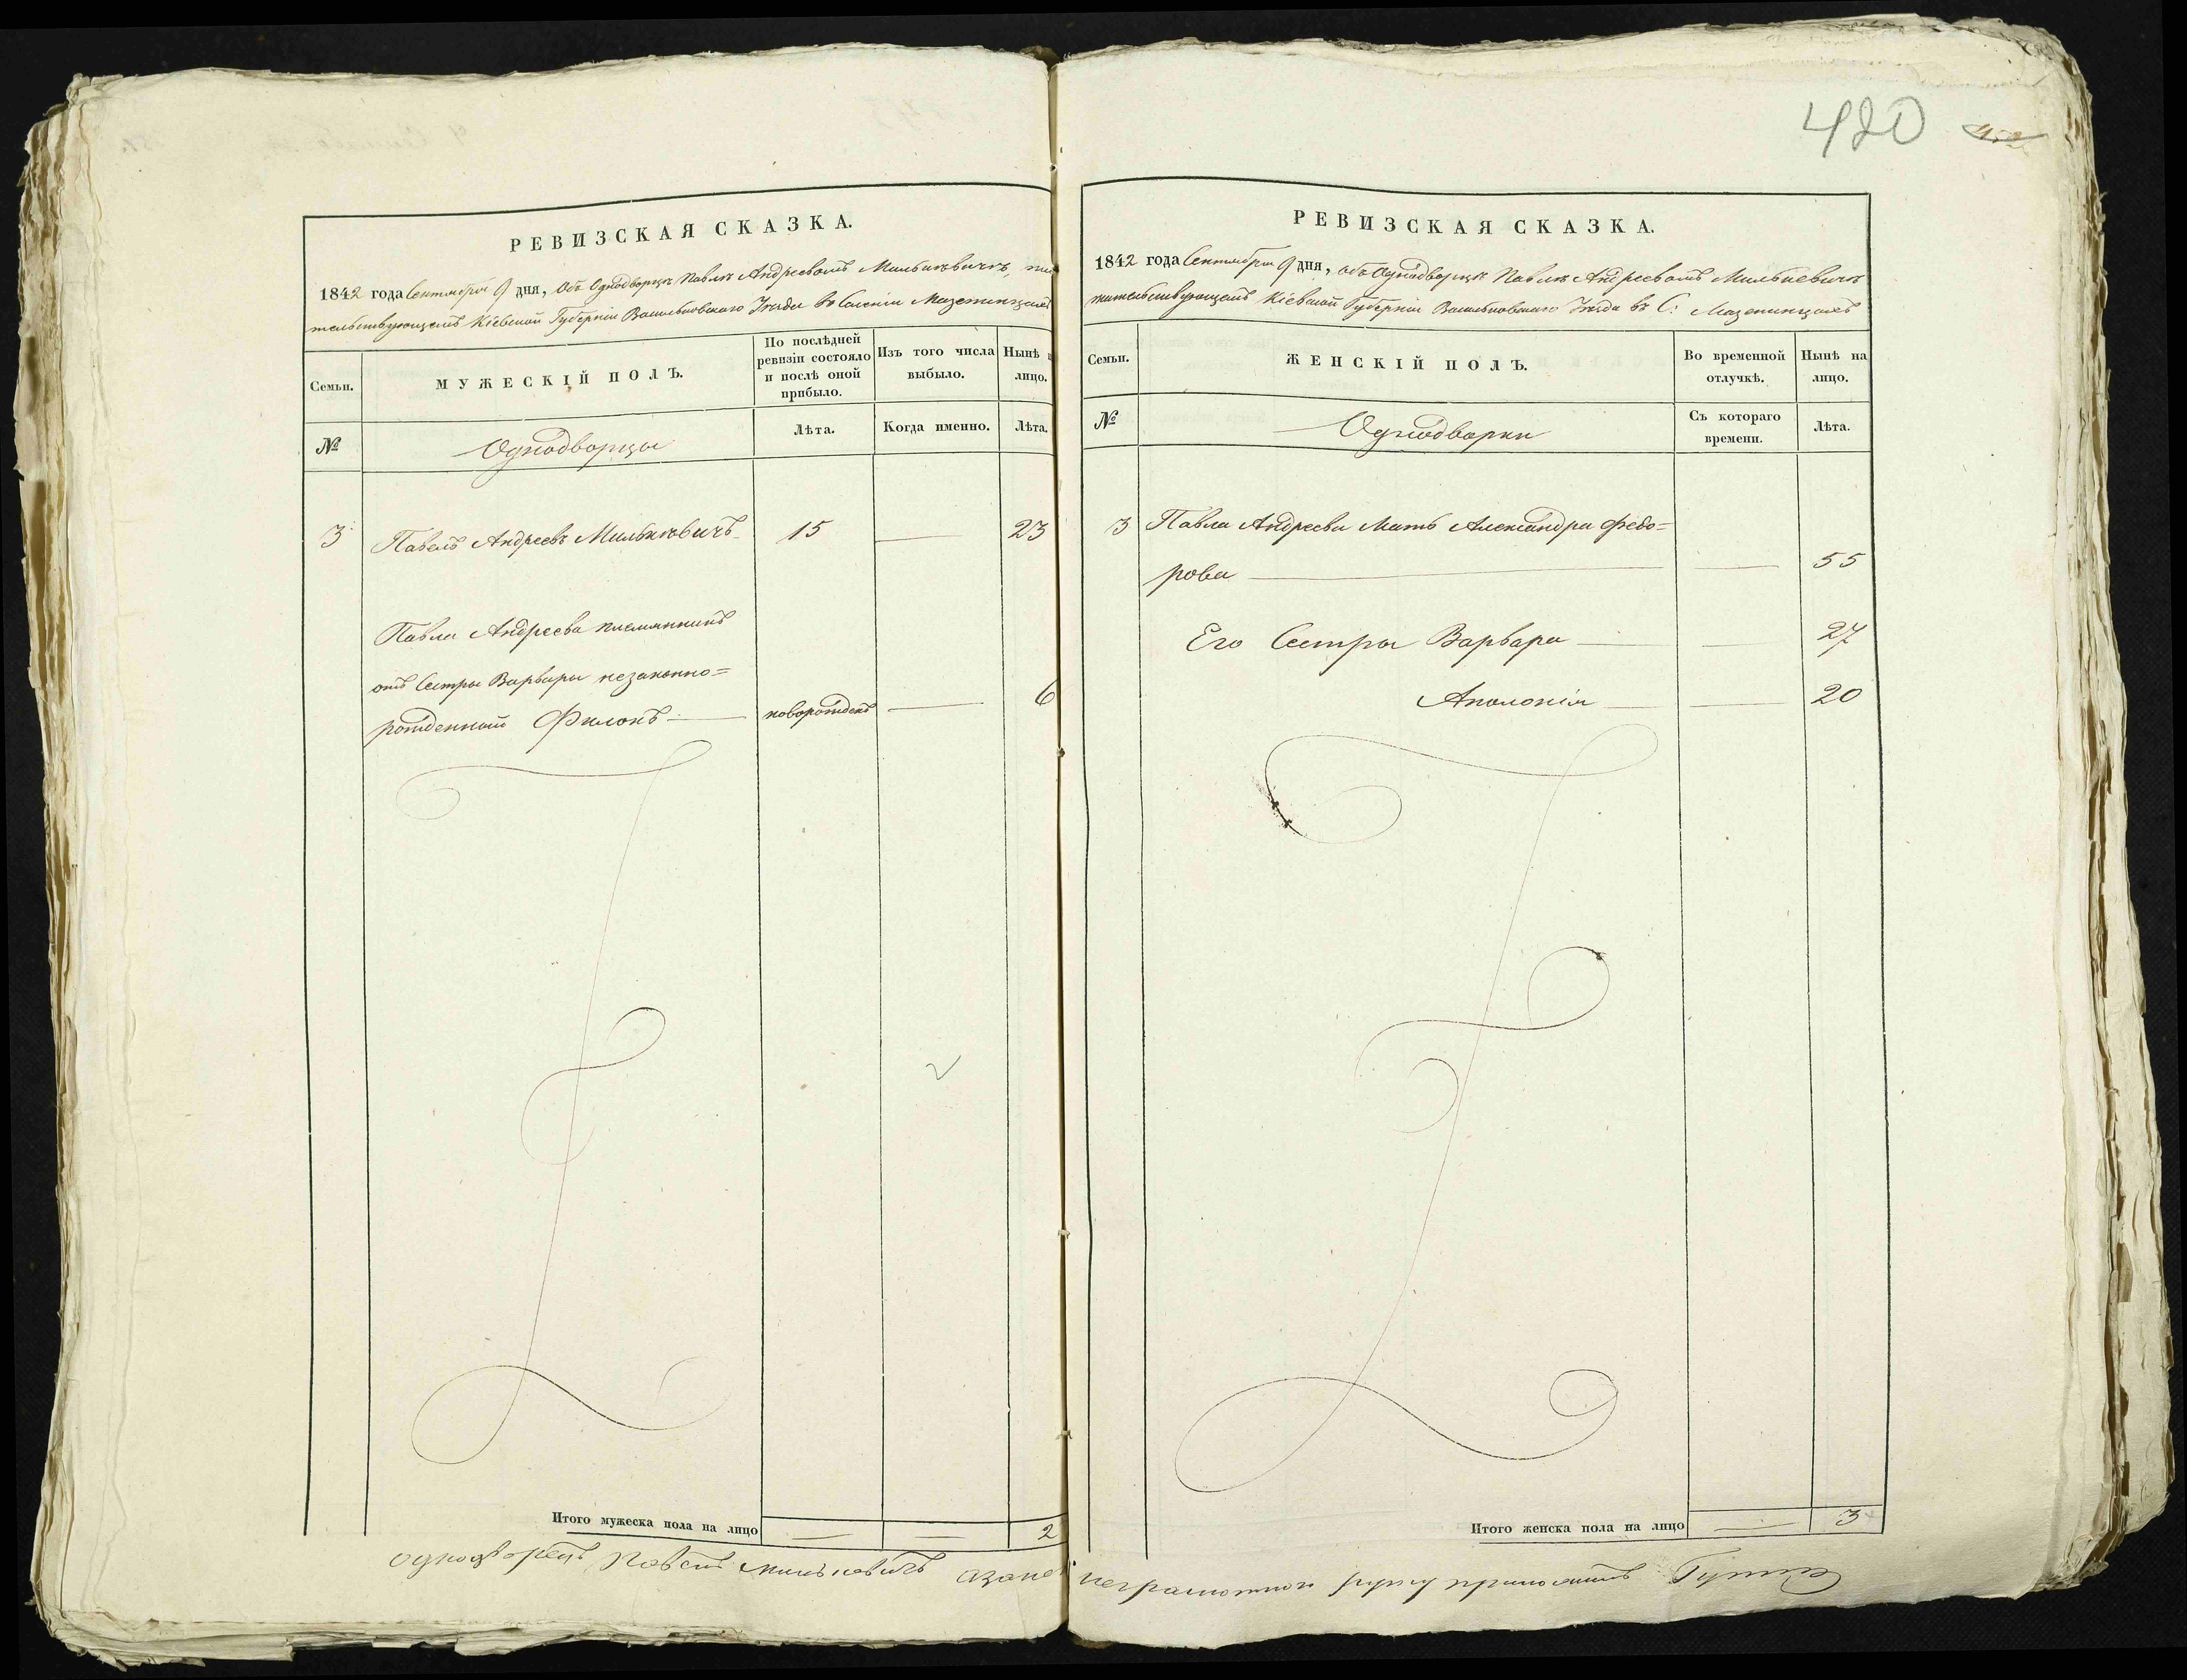 420
РЕВИЗСКАЯ СКАЗКА.
1842 года Сентября 9 дня, Объ Однодворцѣ Павлѣ Андреевомъ Милькѣвичѣ, жи
тельствующемъ Кіевской Губерніи Васильковскаго Уѣзда въ Селеніи Мазепинцахъ
Семьи.
МУЖЕСКІЙ ПОЛЪ.
По послѣдней
ревизіи состояло
и послѣ оной
прибыло.
Изъ того числа
выбыло.
Нынѣ н
лицо.
№
Однодворцы
Лѣта.
Когда именно.
Лѣта.
3 Павелъ Андреевъ Милькѣвичъ 15 — 23
Павла Андреева племянникъ
отъ Сестры Варвары незаконно=
рожденный Филонъ — новорожденъ — 6
Итого мужеска пола на лицо — — 2
Однодворецъ Павелъ Милькѣвичъ азане
РЕВИЗСКАЯ СКАЗКА.
1842 года Сентября 9 дня, объ Однодворцѣ Павлѣ Андреевомъ Милькевичѣ
жительствующемъ Кіевской Губерніи Васильковскаго Уѣзда въ С: Мазепинцахъ
Семьи.
ЖЕНСКІЙ ПОЛЪ.
Во временной
отлучкѣ.
Нынѣ на
лицо.
№
Однодворки
Съ котораго
времени.
Лѣта.
3 Павла Андреева Мать Александра Федо=
рова — — 55
Его Сестры Варвара — — 27
Аполонія — — 20
Итого женска пола на лицо — 3
неграмотного руку приложилъ